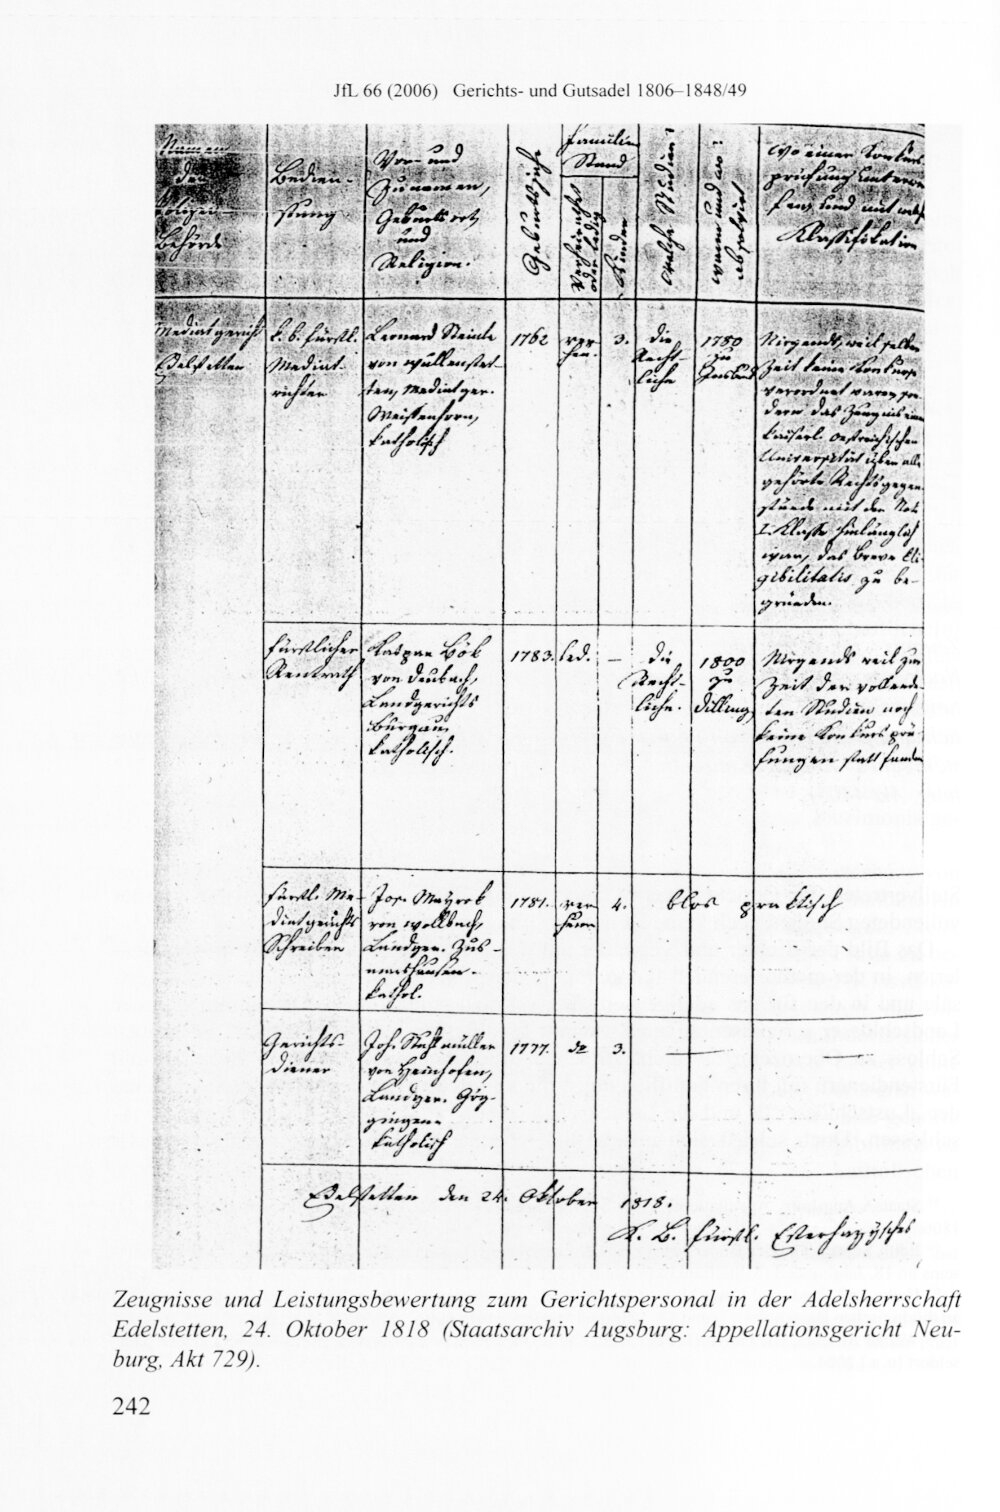 JfL 66 (2006) Gerichts- und Gutsadel 1806–1848/49
Namen
der
Polizei
Behörde
Bedien-
stung
Vor- und
Zunamen,
Geburtsort
und
Religion.
Geburtsjahr
Familien
Stand
Verheirathet
oder ledig
Kinder
Welche Studien?
wann und wo?
absolvirt
Wo einer Konkurs
prüfung unterwor
fen, und mit welch
Klassifikation
Mediatgericht
Edelstetten
k. b. fürstl.
Mediat-
richter
Leonard Steinle
von Wullenstet-
ten, Mediatger.
Weissenhorn,
katholisch
1762
ver
hen.
3.
die
Recht-
liche
1780
zu
Nirgends, weil selber
Zeit keine Konkurse
verordnet waren, son
dern das Zeugnis einer
kaiserl. oestreichischen
Universität über alle
gehörte Rechtsgegen-
stände mit der Note
I. Klasse hinlänglich
war, das Breve Eli-
gibilitatis zu be-
gründen.
Fürstlicher
Rentrath
Kaspar Bök
von Deubach,
Landgerichts
Burgau,
katholisch.
1783.
led.
—
die
Recht-
liche.
1800
zu
Dilling.
Nirgends weil zur
Zeit der vollende-
ten Studien noch
keine Konkursprü-
fungen statt fanden
Fürstl. Me-
diatgerichts
Schreiber
Jos. Mayrok
von Wollbach,
Landger. Zus-
marshausen.
kathol.
1781.
ver
heur
4.
blos praktisch
Gerichts-
diener
Joh. Stahlmüller
von Hainhofen,
Landger. Gög-
gingen.
katholisch
1777.
do
3.
—
—
Edelstetten den 24. Oktober 1818.
K. B. Fürstl. Esterhazysches
Zeugnisse und Leistungsbewertung zum Gerichtspersonal in der Adelsherrschaft
Edelstetten, 24. Oktober 1818 (Staatsarchiv Augsburg: Appellationsgericht Neu-
burg, Akt 729).
242